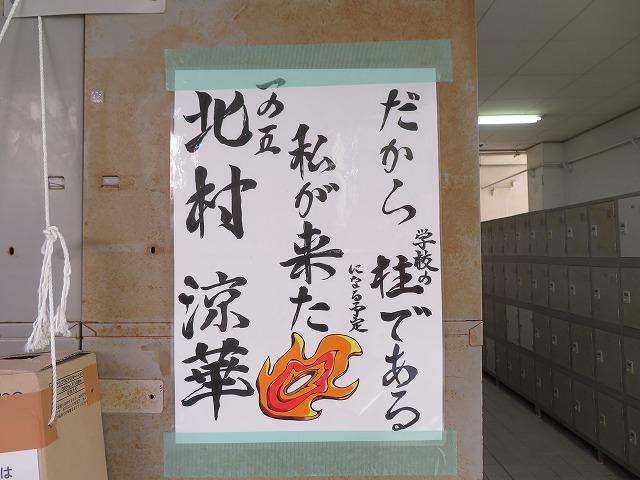 だから学校の柱である
になる予定
私が来た
一の五
北村 涼華
は